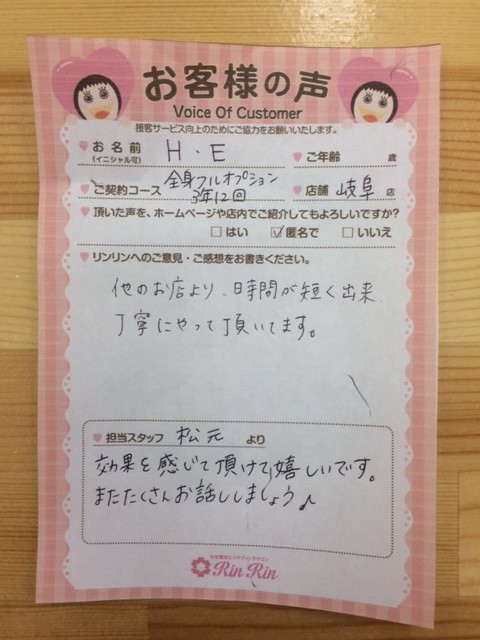 お客様の声
Voice Of Customer
接客サービス向上のためにご協力をお願いいたします。
お名前 (イニシャル可) H・E ご年齢 歳
ご契約コース 全身フルオプション 3年12回 店舗 岐阜 店
頂いた声を、ホームページや店内でご紹介してもよろしいですか?
□はい ☑匿名で □いいえ
リンリンへのご意見・ご感想をお書きください。
他のお店より、時間が短く出来
丁寧にやって頂いてます。
担当スタッフ 松元 より
効果を感じて頂けて嬉しいです。
またたくさんお話ししましょう♪
Rin Rin